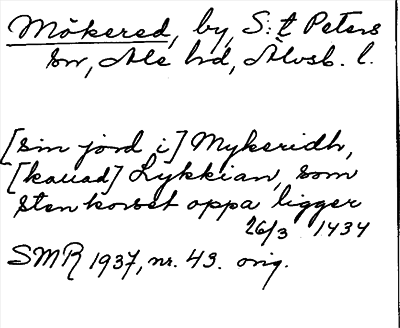 Mökered, by, S:t Peters
sn, Ale hd, Älvsb. l.
[sin jord i] Mykeridh,
[kallad] Lykkian, som
stenkorset oppa ligger
26/3 1434
SMR 1937, nr. 43. orig.